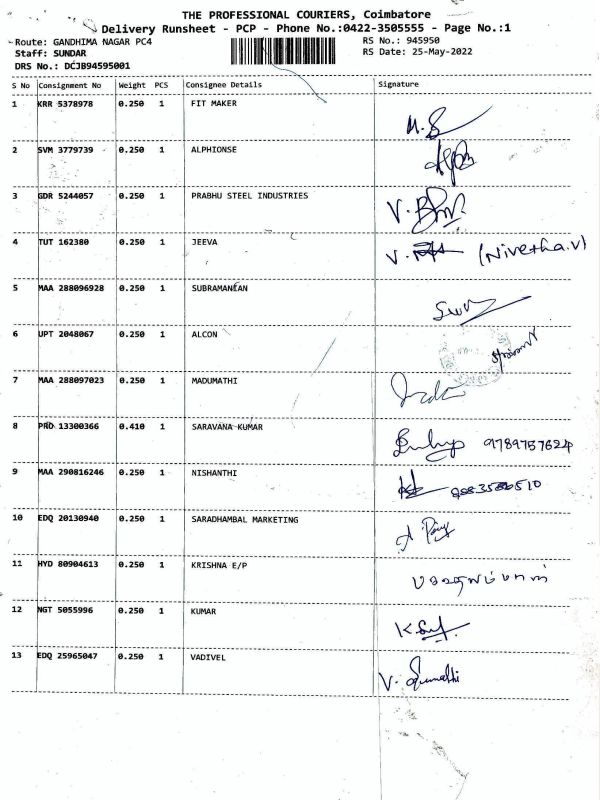 THE PROFESSIONAL COURIERS, Coimbatore
Delivery Runsheet - PCP - Phone No.:0422-3505555 - Page No.:1
Route: GANDHIMA NAGAR PC4
RS No.: 945950
Staff: SUNDAR
RS Date: 25-May-2022
DRS No.: DCJB94595001
S No Consignment No Weight PCS Consignee Details Signature
1 KRR 5378978 0.250 1 FIT MAKER
2 SVM 3779739 0.250 1 ALPHIONSE
3 GDR 5244057 0.250 1 PRABHU STEEL INDUSTRIES
4 TUT 162380 0.250 1 JEEVA (Nivetha.V)
5 MAA 288096928 0.250 1 SUBRAMANIAN
6 UPT 2048067 0.250 1 ALCON
7 MAA 288097023 0.250 1 MADUMATHI
8 PRD 13300366 0.410 1 SARAVANA KUMAR 9789757624
9 MAA 290816246 0.250 1 NISHANTHI
10 EDQ 20130940 0.250 1 SARADHAMBAL MARKETING
11 HYD 80904613 0.250 1 KRISHNA E/P
12 NGT 5055996 0.250 1 KUMAR
13 EDQ 25965047 0.250 1 VADIVEL V. Sumathi